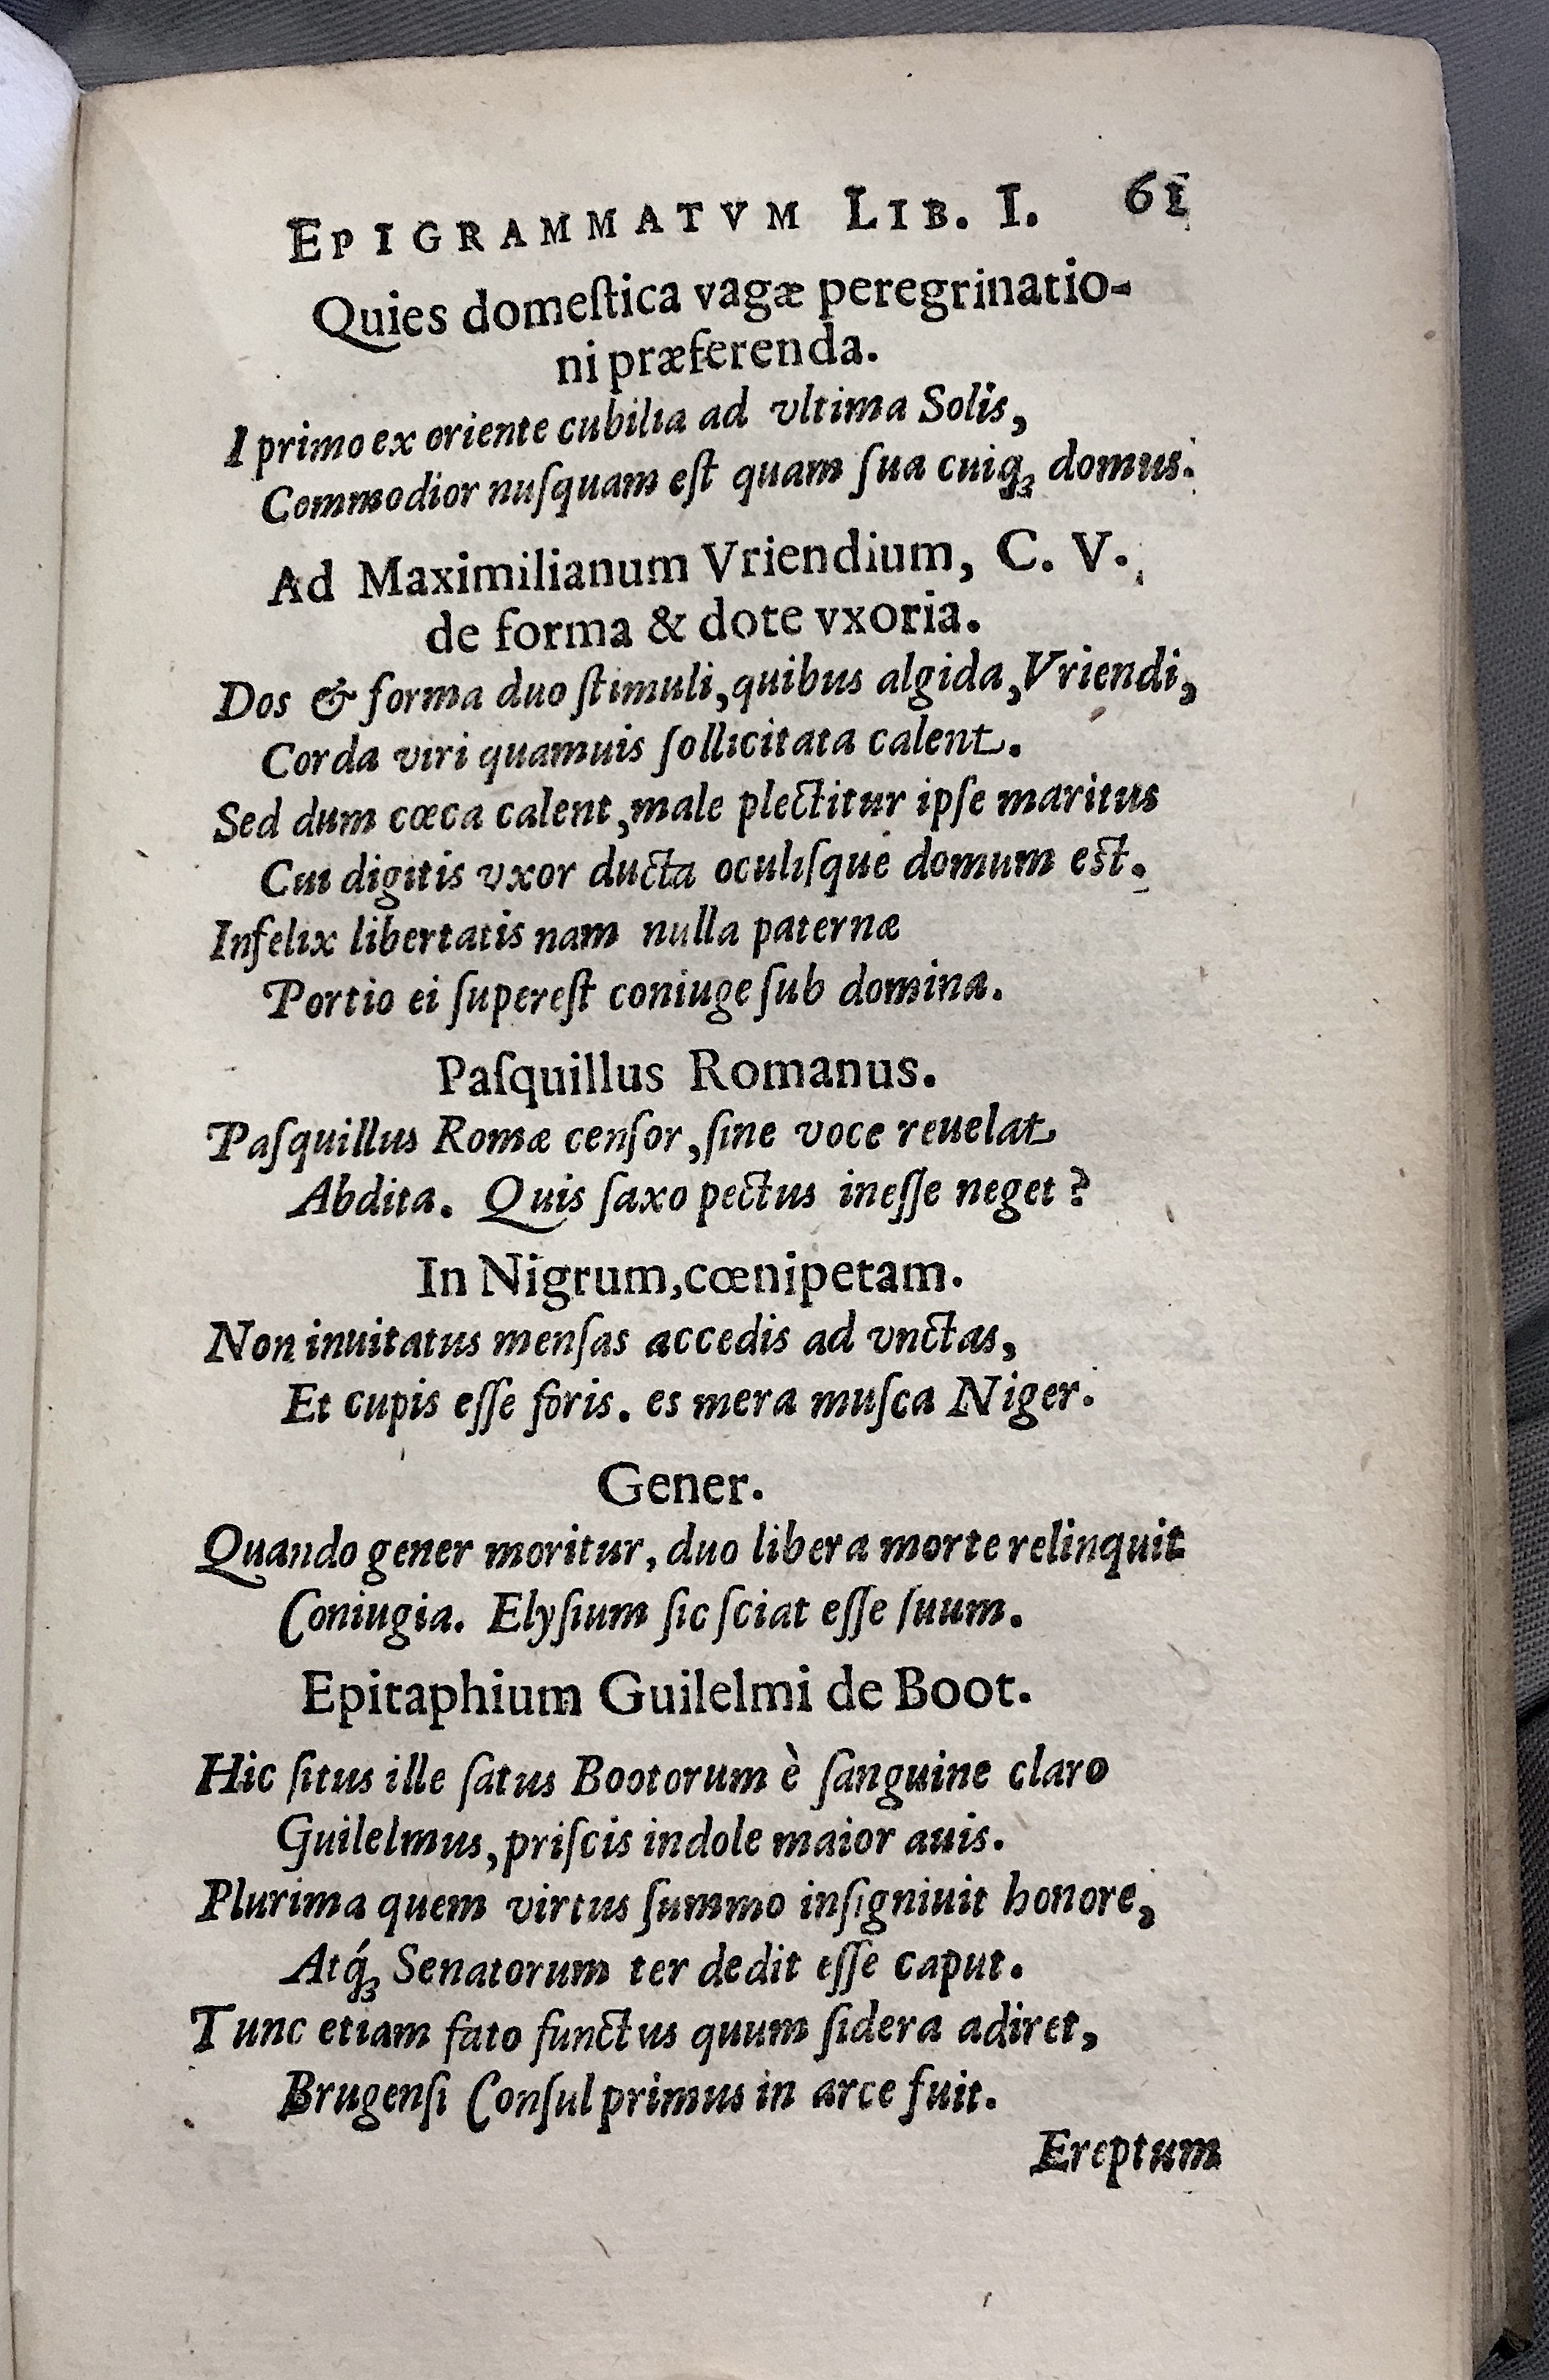 EPIGRAMMATVM LIB. I. 61
Quies domeſtica vagæ peregrinatio-
ni præferenda.
I primo ex oriente cubilia ad vltima Solis,
Commodior nuſquam eſt quam ſua cuiqꝫ domus.
Ad Maximilianum Vriendium, C. V.
de forma & dote vxoria.
Dos & forma duo ſtimuli, quibus algida, Vriendi,
Corda viri quamuis ſollicitata calent.
Sed dum cœca calent, male plectitur ipſe maritus
Cui digitis vxor ducta oculiſque domum eſt.
Infelix libertatis nam nulla paternæ
Portio ei ſupereſt coniuge ſub domina.
Paſquillus Romanus.
Paſquillus Romæ cenſor, ſine voce reuelat
Abdita. Quis ſaxo pectus ineſſe neget?
In Nigrum, cœnipetam.
Non inuitatus menſas accedis ad vnctas,
Et cupis eſſe foris. es mera muſca Niger.
Gener.
Quando gener moritur, duo libera morte relinquit
Coniugia. Elyſium ſic ſciat eſſe ſuum.
Epitaphium Guilelmi de Boot.
Hic ſitus ille ſatus Bootorum è ſanguine claro
Guilelmus, priſcis indole maior auis.
Plurima quem virtus ſummo inſigniuit honore,
Atq́ꝫ Senatorum ter dedit eſſe caput.
Tunc etiam fato functus quum ſidera adiret,
Brugenſi Conſul primus in arce fuit.
Ereptum